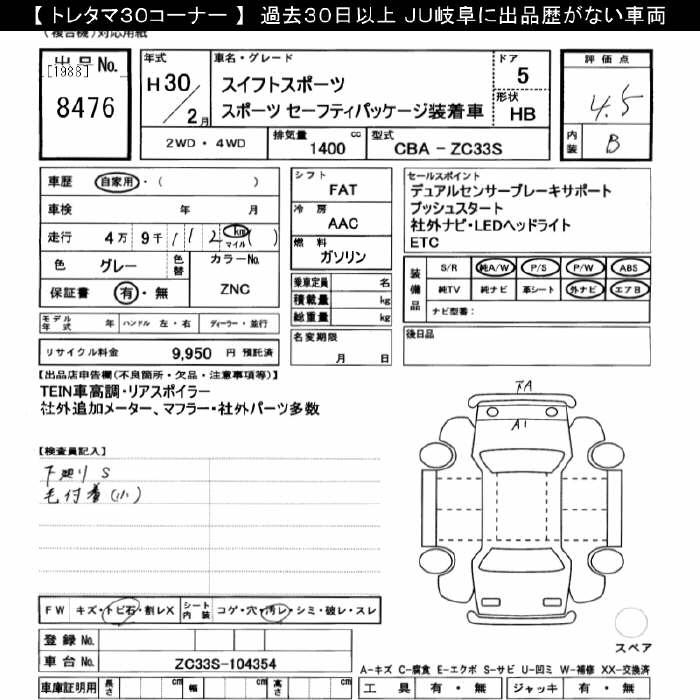 【 トレタマ30コーナー 】 過去30日以上 JU岐阜に出品歴がない車両
(複合機)対応用紙
出品No.
[1988]
8476
年式
H30
2月
車名・グレード
スイフトスポーツ
スポーツ セーフティパッケージ装着車
ドア
5
形状
HB
評価点
4.5
内装
B
2WD・4WD
排気量
1400 cc
型式
CBA - ZC33S
車歴 自家用・( )
車検 年 月
走行 4万 9千 112 km マイル ( )
色 グレー
色替
カラーNo.
ZNC
保証書 有・無
モデル年式 年 ハンドル 左・右 ディーラー・並行
リサイクル料金 9,950 円 預託済
シフト
FAT
冷房
AAC
燃料
ガソリン
乗車定員 名
積載量 kg
総重量 kg
名変期限
月 日
セールスポイント
デュアルセンサーブレーキサポート
プッシュスタート
社外ナビ・LEDヘッドライト
ETC
装備品
S/R 純A/W P/S P/W ABS
純TV 純ナビ 革シート 外ナビ エアB
ナビ型番:
後日品
【出品店申告欄(不良箇所・欠品・注意事項等)】
TEIN車高調・リアスポイラー
社外追加メーター、マフラー・社外パーツ多数
【検査員記入】
下廻り S
毛付着(小)
FW キズ・トビ石・割レX
シート内装 コゲ・穴・汚レ・シミ・破レ・スレ
登録 No.
車台 No. ZC33S-104354
車庫証明用 長さ cm 幅 cm 高さ cm
A1
スペア
A-キズ C-腐食 E-エクボ S-サビ U-凹ミ W-補修 XX-交換済
工具 有・無 ジャッキ 有・無